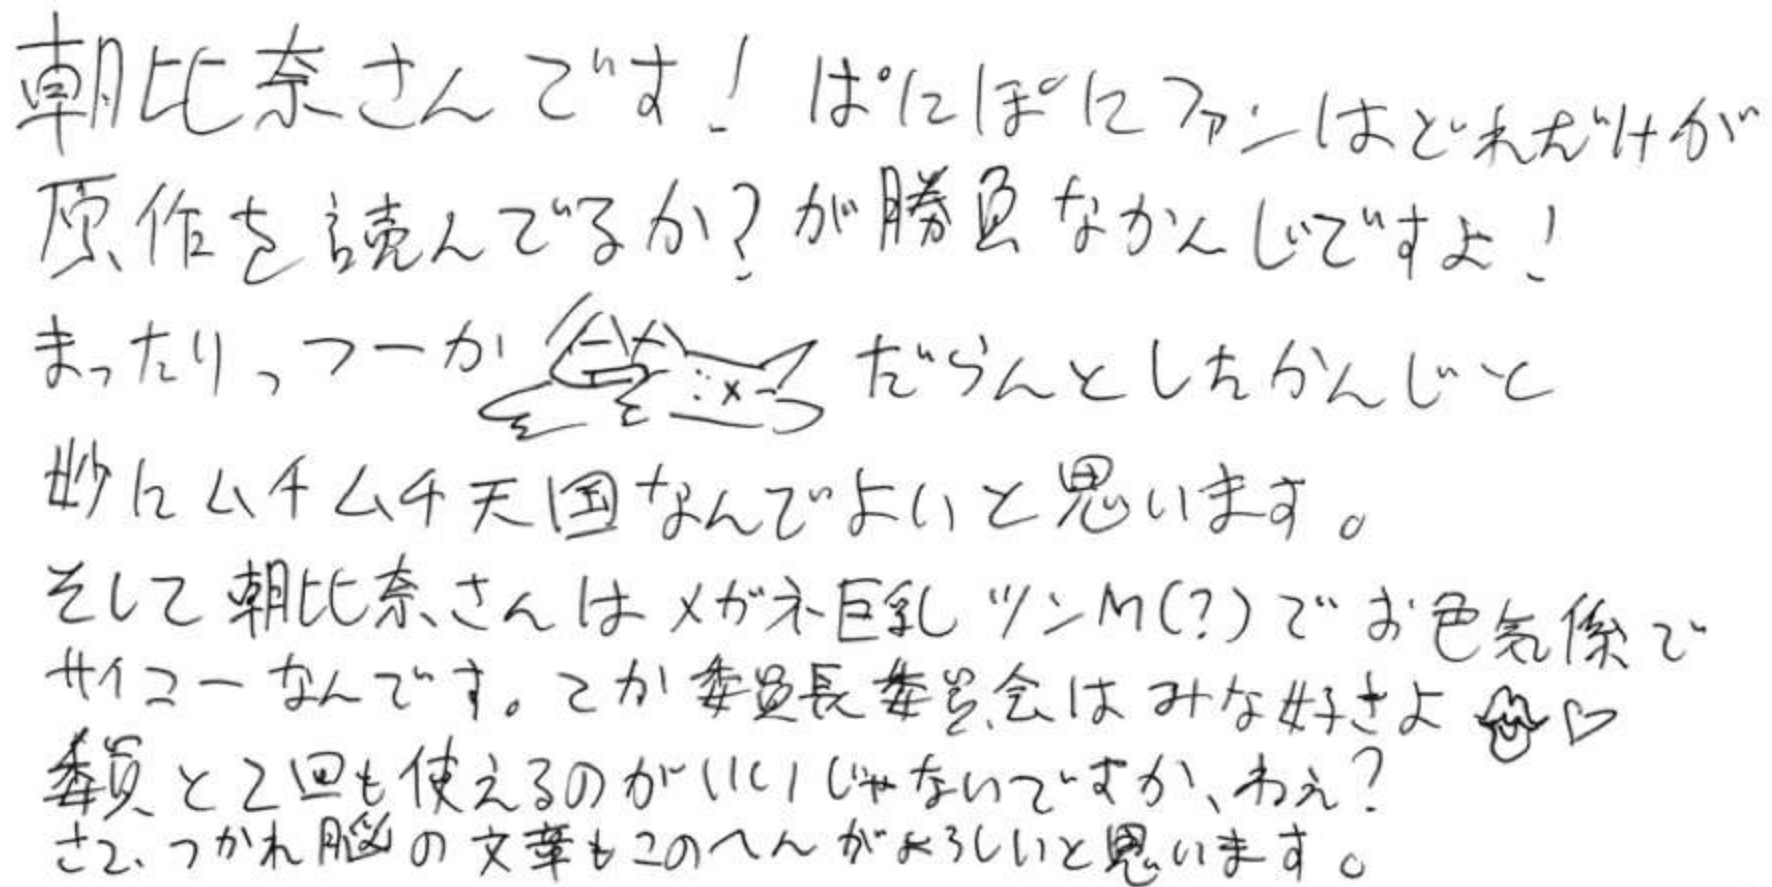 朝比奈さんです! ぱにぽにファンはどれだけが
原作を読んでるか?が勝負なかんじですよ!
まったりっつーか だらんとしたかんじと
妙にムチムチ天国なんでよいと思います。
そして朝比奈さんはメガネ巨乳ツンM(?)でお色気係で
サイコーなんです。とか委員長委員会はみな好きよ♡
委員と2回も使えるのがいいじゃないですか、ねえ?
さて、つかれ脳の文章もこのへんがよろしいと思います。